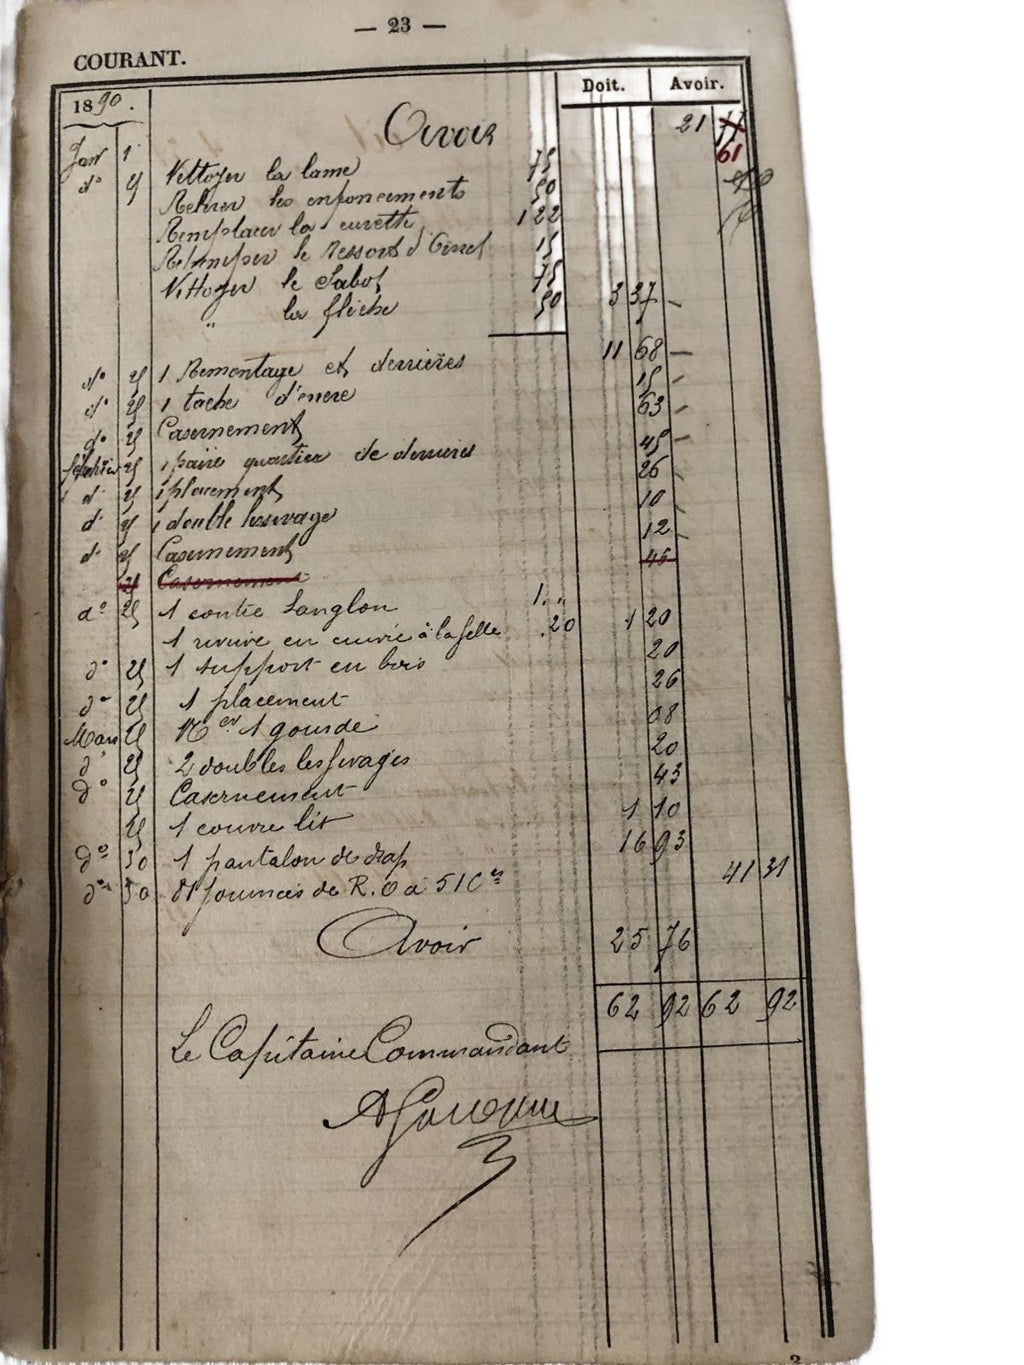 — 23 —
COURANT.
Doit. Avoir.
1890.
Janv 1er Avoir 21 61
do Nettoyer la lame 75
Relever les enfoncements 50
Remplacer la cuvette 1 22
Retremper le ressort 15
Nettoyer le Sabot
" la flèche 50 3 37
do 1 Remontage et derrières 11 68
do 1 tache d'encre 15
do Casernement 63
février 1 paire quartier de derrières 45
d 1 placement 26
d 1 double lessivage 10
do Casernement 12
Casernement 45
do 1 contre Sanglon 1. "
1 rivure en cuivre à la selle .20 1 20
do 1 support en bois 20
do 1 placement 26
Mars 1 gourde 08
d 2 doubles lessivages 20
do Casernement 43
1 couvre lit 1 10
do 30 1 pantalon de drap 16 93
do journées de R. O à 51 Ces 41 31
Avoir 25 76
62 92 62 92
Le Capitaine Commandant